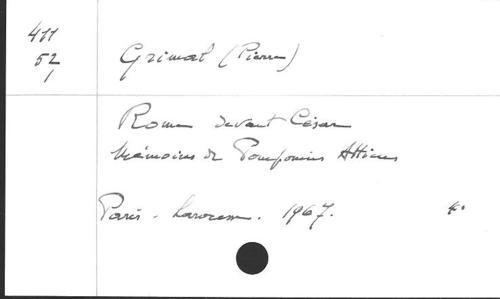 411
52
1
Grimal (Pierre)
Rome devant César
Mémoires de Pomponius Atticus
Paris - Larousse. 1967. 4°